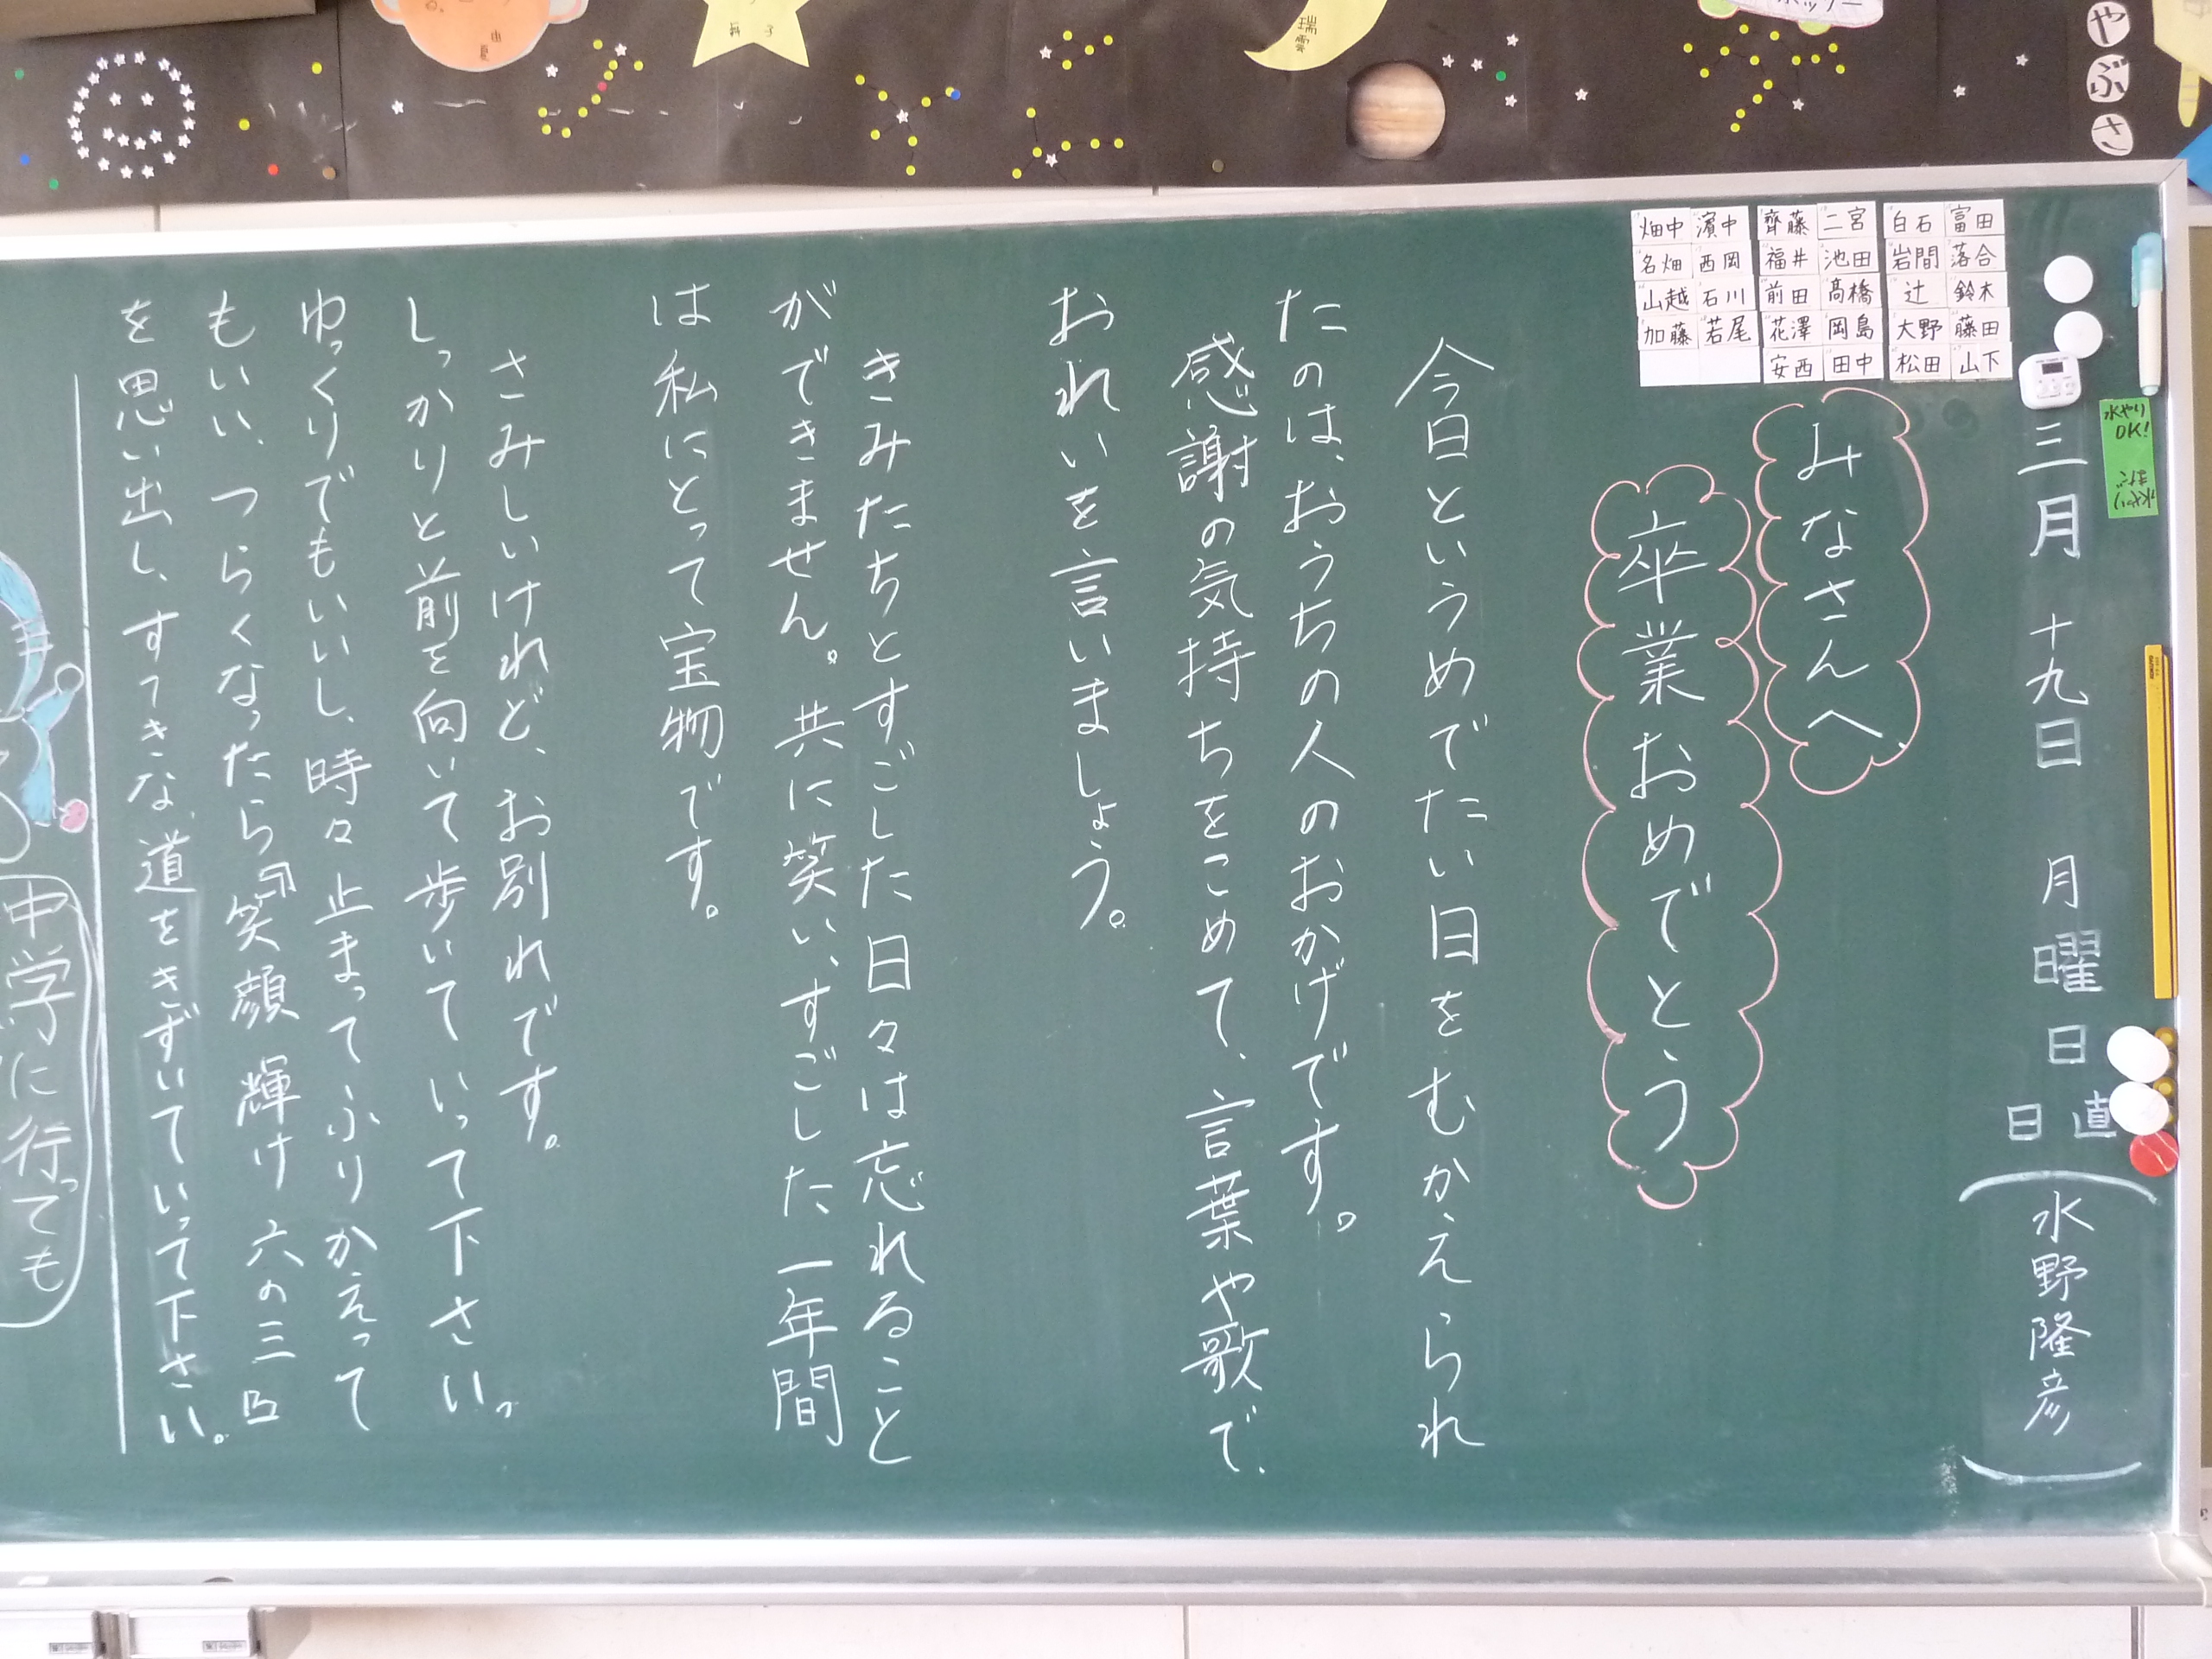 やぶさ
由
夏
瑞雲
富田
落合
鈴木
藤田
山下
白石
岩間
辻
大野
松田
二宮
池田
髙橋
岡島
田中
齊藤
福井
前田
花澤
安西
濱中
西岡
石川
若尾
畑中
名畑
山越
加藤
水やり
OK!
水やり
まだ
三月 十九日 月曜日
日直
水野隆彦
みなさんへ、
卒業おめでとう
今日というめでたい日をむかえられ
たのは、おうちの人のおかげです。
感謝の気持ちをこめて、言葉や歌で、
おれいを言いましょう。
きみたちとすごした日々は忘れること
ができません。共に笑い、すごした一年間
は私にとって宝物です。
さみしいけれど、お別れです。
しっかりと前を向いて歩いていって下さい。
ゆっくりでもいいし、時々止まってふりかえって
もいい、つらくなったら『笑顔 輝け 六の三』
を思い出し、すてきな道をきずいていって下さい。
中学に行っても